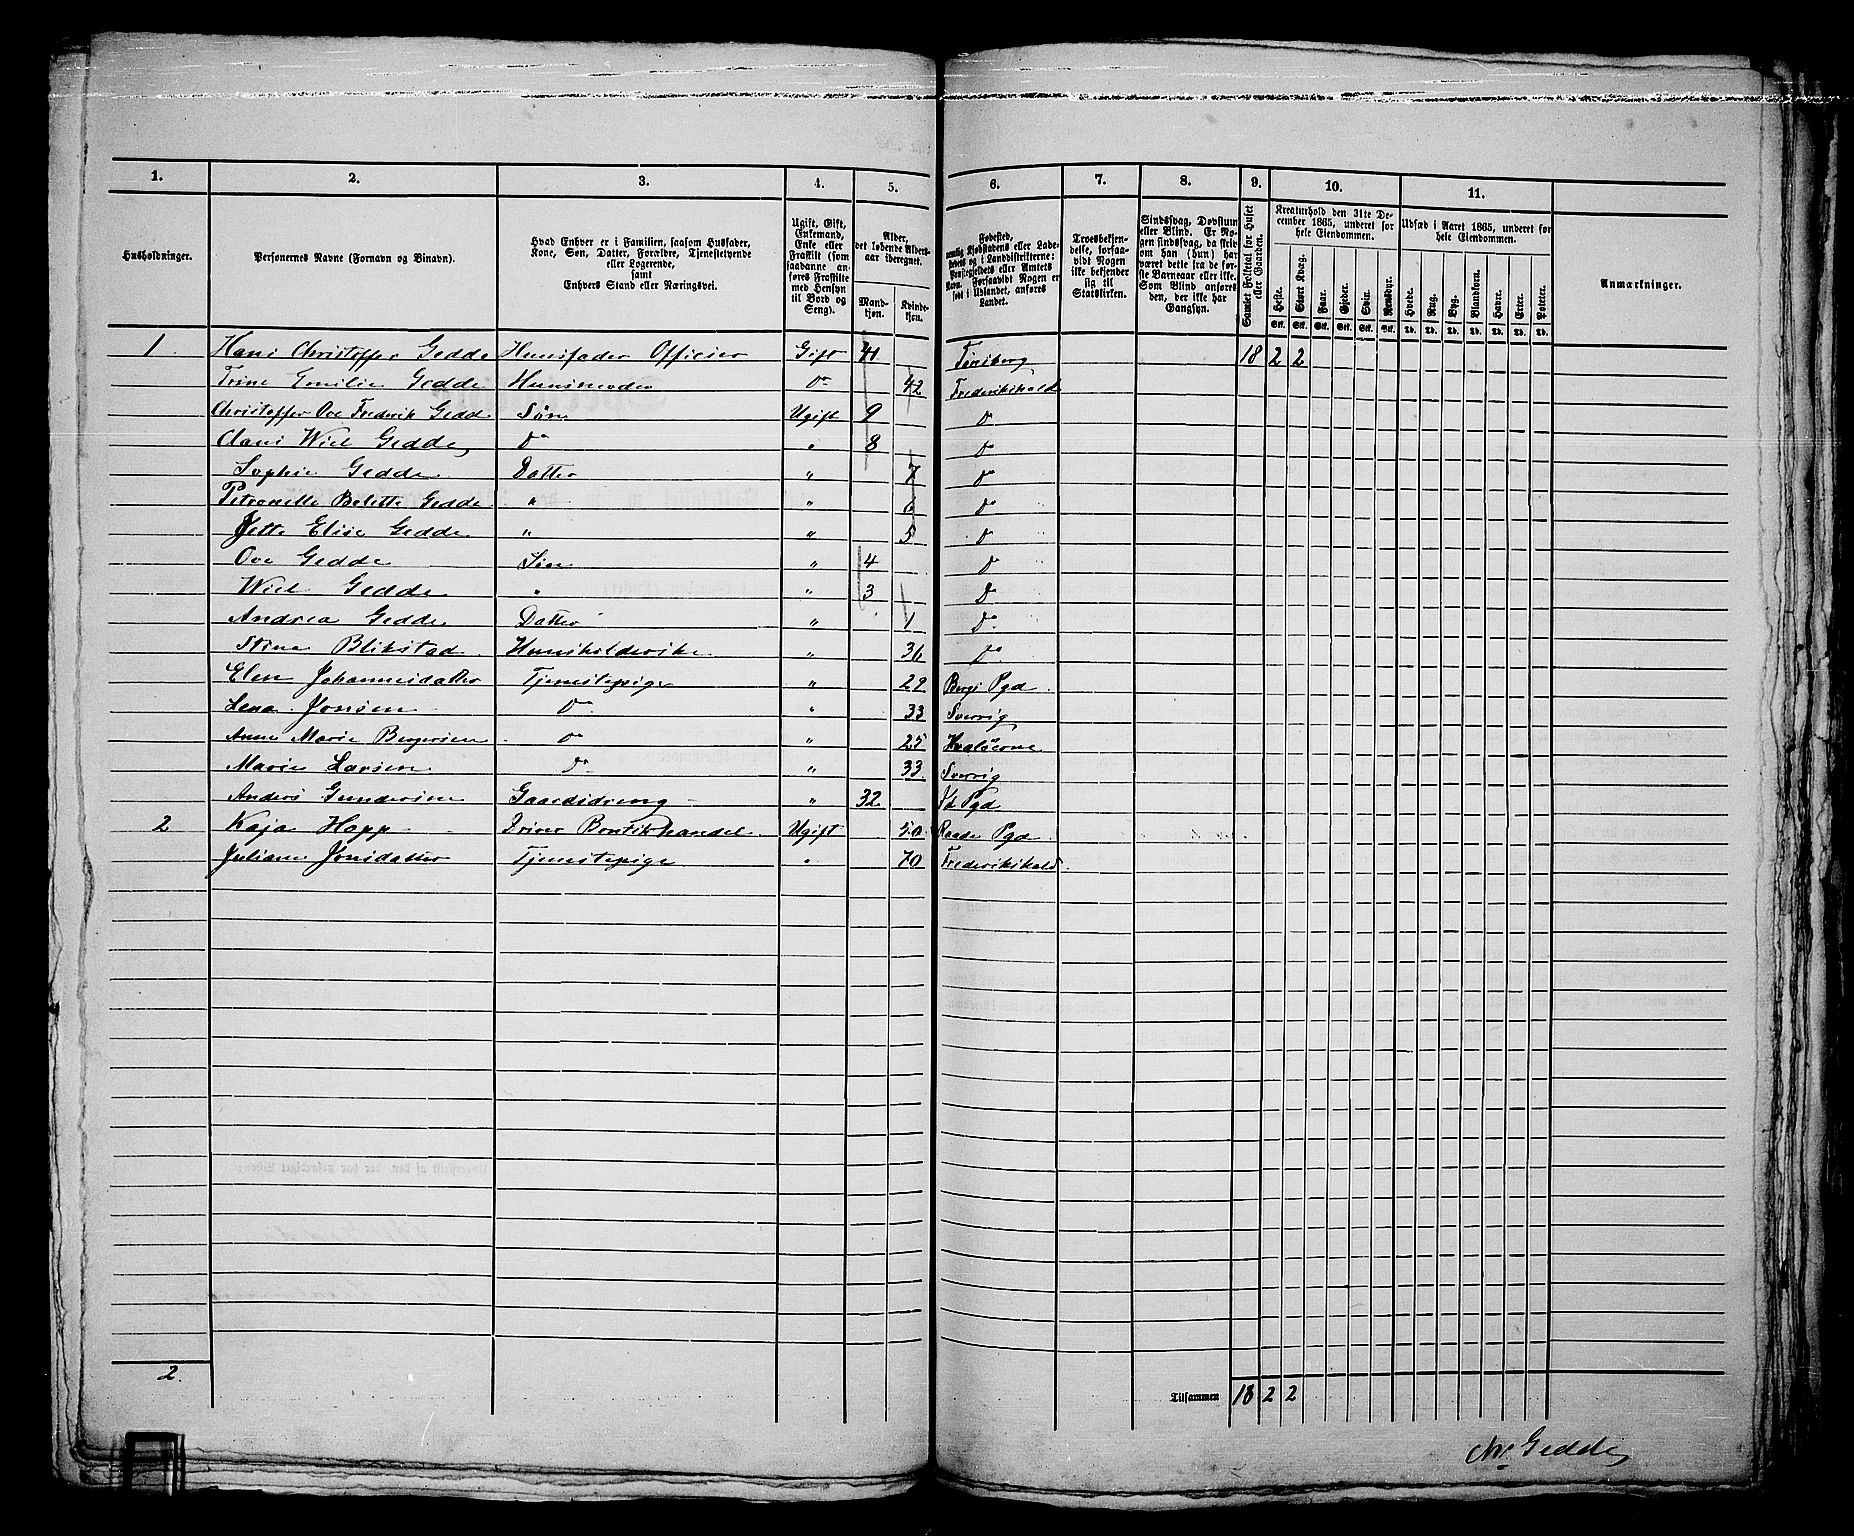 1. 2. 3. 4. 5. 6. 7. 8. 9. 10. 11.
Husholdninger.
Personernes Navne (Fornavn og Binavn).
Hvad Enhver er i Familien, saasom Husfader,
Kone, Søn, Datter, Forældre, Tjenestetyende
eller Logerende,
samt
Enhvers Stand eller Næringsvei.
Ugift, Gift,
Enkemand,
Enke eller
Fraskilt (som
saadanne an-
føres Fraskilte
med Hensyn
til Bord og
Seng).
Alder,
det løbende Alders-
aar iberegnet.
Mand-
kjøn.
Kvinde-
kjøn.
Fødested,
nemlig Kjøbstadens eller Lade-
stedets og i Landdistrikterne:
Præstegjeldets eller Amtets
Navn. Forsaavidt Nogen er
født i Udlandet, anføres
Landet.
Troesbekjen-
delse, forsaa-
vidt Nogen
ikke bekjender
sig til
Statskirken.
Sindssvag, Døvstum
eller Blind. Er No-
gen sindssvag, da skriv
om han (hun) har
været dette fra de før-
ste Barneaar eller ikke.
Som Blind anføres
den, der ikke har
Gangsyn.
Samlet Folketal for Huset
eller Gaarden.
Kreaturhold den 31te De-
cember 1865, underet for
hele Eiendommen.
Heste. Stort Kvæg. Faar. Gjeder. Svin. Rensdyr.
Stk. Stk. Stk. Stk. Stk. Stk.
Udsæd i Aaret 1865, underet for
hele Eiendommen.
Hvede. Rug. Byg. Blandkorn. Havre. Erter. Poteter.
Td. Td. Td. Td. Td. Td. Td.
Anmærkninger.
1 Hans Christoffer Gedde Huusfader Officier Gift 41 Tønsberg 18 2 2
Trine Emilie Gedde Huusmoder Do 42 Frederikshald
Christoffer Ove Frederik Gedde Søn Ugift 9 Do
Claus Wiel Gedde Do " 8 Do
Sophie Gedde Datter " 7 Do
Petronelle Bolette Gedde " " 6 Do
Jette Elise Gedde " " 5 Do
Ove Gedde Søn " 4 Do
Wiel Gedde " " 3 Do
Andrea Gedde Datter " 1 Do
Stina Blikstad Huusholderske " 36 Do
Elen Johannesdatter Tjenestepige " 29 Bergs Pgd
Lena Jonsen Do " 33 Sverrig
Anne Marie Bergersen Do " 25 Hvaløerne
Marie Larsen Do " 33 Sverrig
Anders Gundersen Gaardsdreng " 32 Id Pgd
2 Kaja Hopp Driver Boutikhandel Ugift 50 Raade Pgd
Juliane Jonsdatter Tjenestepige " 70 Frederikshald
2
Tilsammen 18 2 2
Gedde